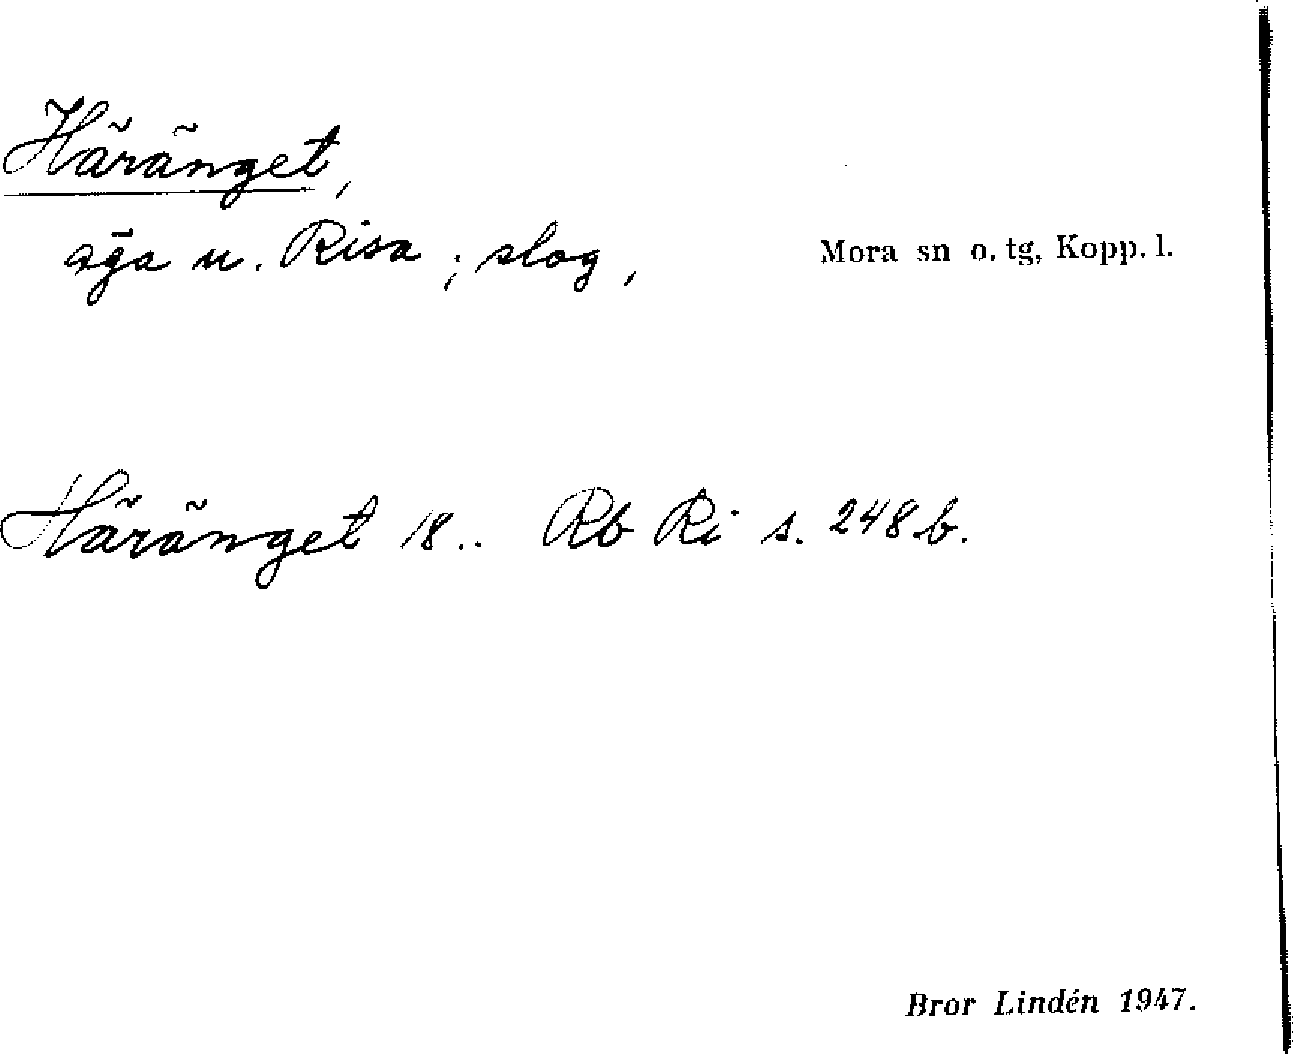 Häränget,
äga u. Risa; slog,
Mora sn o. tg, Kopp. l.
Häränget 18.. Rb Ri s. 248 b.
Bror Lindén 1947.